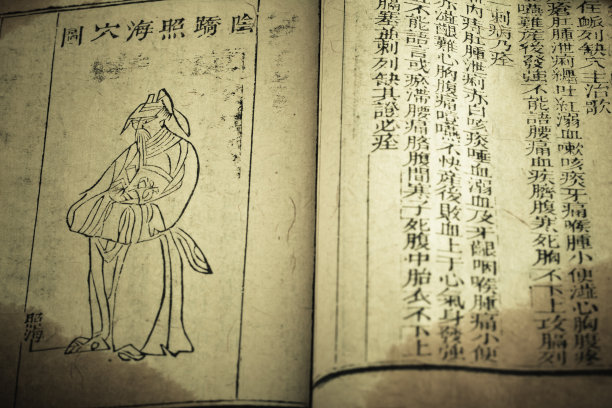 陰蹻照海穴圖
照海
列缺穴主治歌
肛腫泄痢纏吐紅溺血嗽咳痰牙痛喉腫小便澁心胸腹疼
噎難產後發強不能語腰痛血疾臍腹寒死胸不下上攻膈
刺病乃痊
內痔肛腫泄痢赤白咳痰唾血溺血及牙齦咽喉腫痛小便
赤澁艱難心胸腹痛噎嚥不快產後敗血上于心氣身發強
不能語言或瘀滯腰痛臍腹間寒子死腹中胎衣不下上
膈塞並刺列缺其證必痊